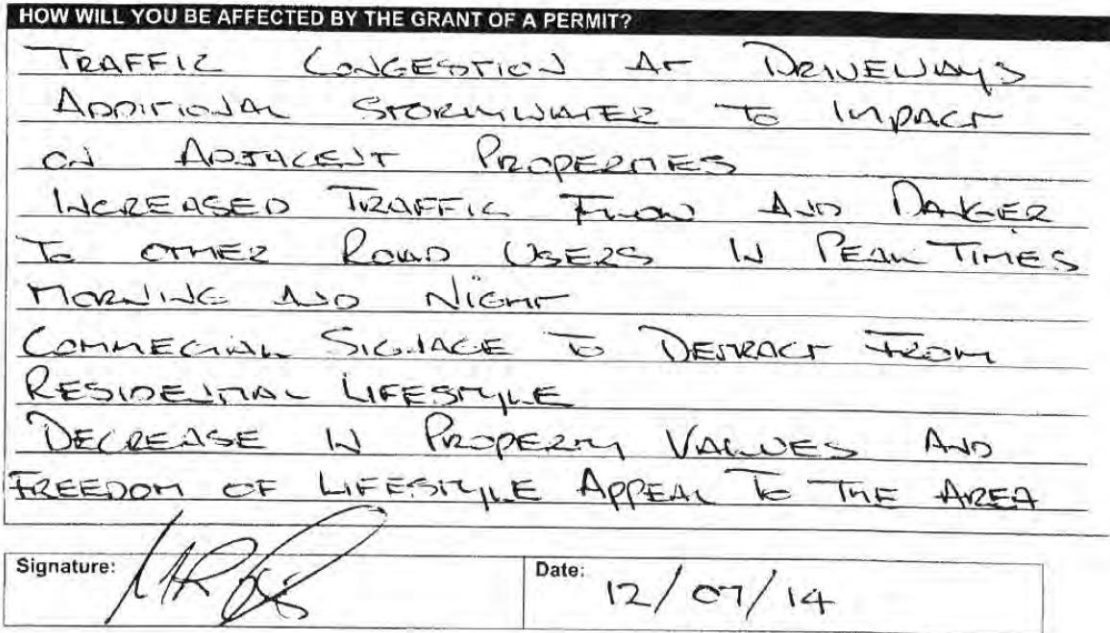 HOW WILL YOU BE AFFECTED BY THE GRANT OF A PERMIT?
TRAFFIC CONGESTION AT DRIVEWAYS
ADDITIONAL STORMWATER TO IMPACT
ON ADJACENT PROPERTIES
INCREASED TRAFFIC FLOW AND DANGER
TO OTHER ROAD USERS IN PEAK TIMES
MORNING AND NIGHT
COMMECIAL SIGNAGE TO DETRACT FROM
RESIDENTIAL LIFESTYLE
DECREASE IN PROPERTY VALUES AND
FREEDOM OF LIFESTYLE APPEAL TO THE AREA
Signature:
Date: 12/07/14